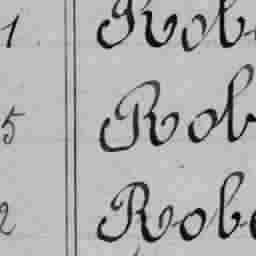 1 Robe
5 Rob
2 Robe